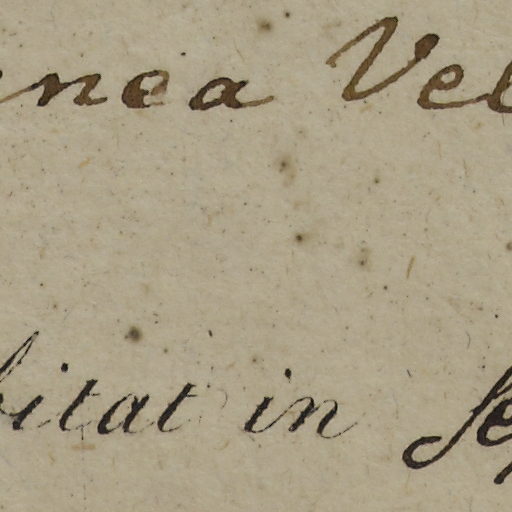 nea Vel
bitat in Sep